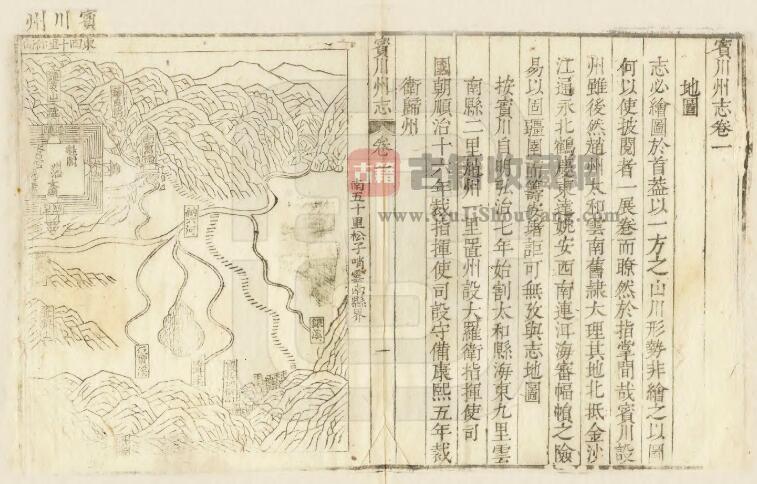 賓川州志卷一
地圖
志必繪圖於首葢以一方之山川形勢非繪之以圖
何以使披閱者一展卷而瞭然於指掌間哉賓川設
州雖後然趙州太和雲南舊隸大理其地北抵金沙
江逼永北鶴慶東達姚安西南連洱海審幅幀之險
易以固疆圉而籌 詎可無攷與志地圖
按賓川自明弘治七年始割太和縣海東九里雲
南縣二里趙州一里置州設大羅衛指揮使司
國朝順治十六年裁指揮使司設守備康熙五年裁
衛歸州
賓川州志
卷一
一
南五十里松子哨雲南縣界
賓川州
東四十里
古籍
古籍收藏网
www.GujiShouCang.com